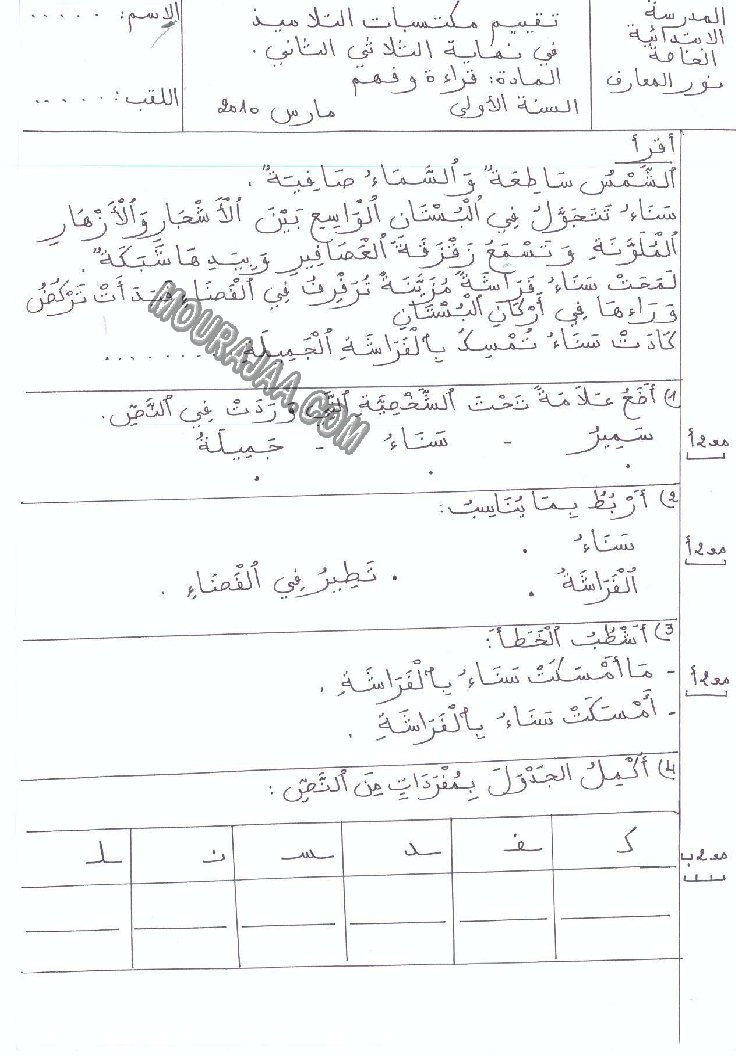 المدرسة
الابتدائية
الخاصة
نور المعارف
تقييم مكتسبات التلاميذ
في نهاية الثلاثي الثاني.
المادة: قراءة وفهم
السنة الأولى مارس 2010
الإسم: .....
اللقب: .....
أقرأ
الشَّمْسُ سَاطِعَةٌ وَالسَّمَاءُ صَافِيَةٌ.
سَنَاءُ تَتَجَوَّلُ فِي الْبُسْتَانِ الْوَاسِعِ بَيْنَ الْأَشْجَارِ وَالْأَزْهَارِ
الْمُلَوَّنَةِ وَتَسْمَعُ زَقْزَقَةَ الْعَصَافِيرِ وَبِيَدِهَا شَبَكَةٌ.
لَمَحَتْ سَنَاءُ فَرَاشَةً مُزَيَّنَةً تُرَفْرِفُ فِي الْفَضَاءِ فَبَدَأَتْ تَرْكُضُ
وَرَاءَهَا فِي أَرْكَانِ الْبُسْتَانِ
كَادَتْ سَنَاءُ تُمْسِكُ بِالْفَرَاشَةِ الْجَمِيلَةِ ........
MOURAJAA.COM
1) أَضَعُ عَلَامَةً تَحْتَ الشَّخْصِيَّةِ الَّتِي وَرَدَتْ فِي النَّصِّ.
مع2أ
سَمِيرُ - سَنَاءُ - جَمِيلَةُ
2) أَرْبُطُ بِمَا يُنَاسِبُ:
مع2أ
سَنَاءُ .
الْفَرَاشَةُ . . تَطِيرُ فِي الْفَضَاءِ.
3) أَشْطُبُ الْخَطَأَ:
مع2أ
- مَا أَمْسَكَتْ سَنَاءُ بِالْفَرَاشَةِ.
- أَمْسَكَتْ سَنَاءُ بِالْفَرَاشَةِ.
4) أُكْمِلُ الجَدْوَلَ بِمُفْرَدَاتٍ مِنَ النَّصِّ:
مع2ب
كـ ـفـ ـد ـسـ ن لـ